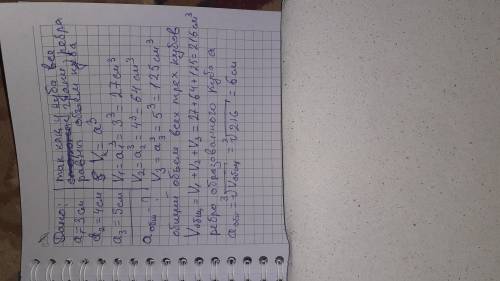 Дано:
a₁=3см
a₂=4см
a₃=5см
aобщ - ?
так как у куба все
грани, ребра
равны объем куба
V = a³
V₁=a₁³ = 3³ = 27см³
V₂=a₂³ = 4³ = 64 см³
V₃=a³ = 5³ = 125 см³
общий объем всех трех кубов
Vобщ = V₁ + V₂ + V₃ = 27+64+125=216см³
ребро образованного куба a
aобщ = ³√Vобщ = ³√216 = 6см